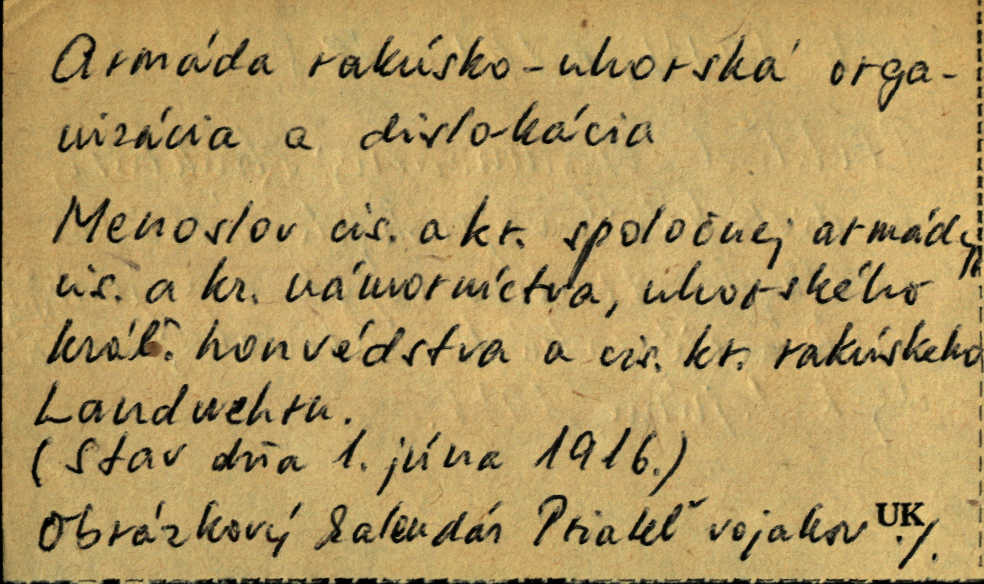 Armáda rakúsko-uhorská orga-
nizácia a dislokácia
Menoslov cis. a kr. spoločnej armády,
cis. a kr. námorníctva, uhorského
kráľ. honvédstva a cis. kr. rakúskeho
Landwehru.
(Stav dňa 1. júna 1916.)
Obrázkový kalendár Priateľ vojakov UK